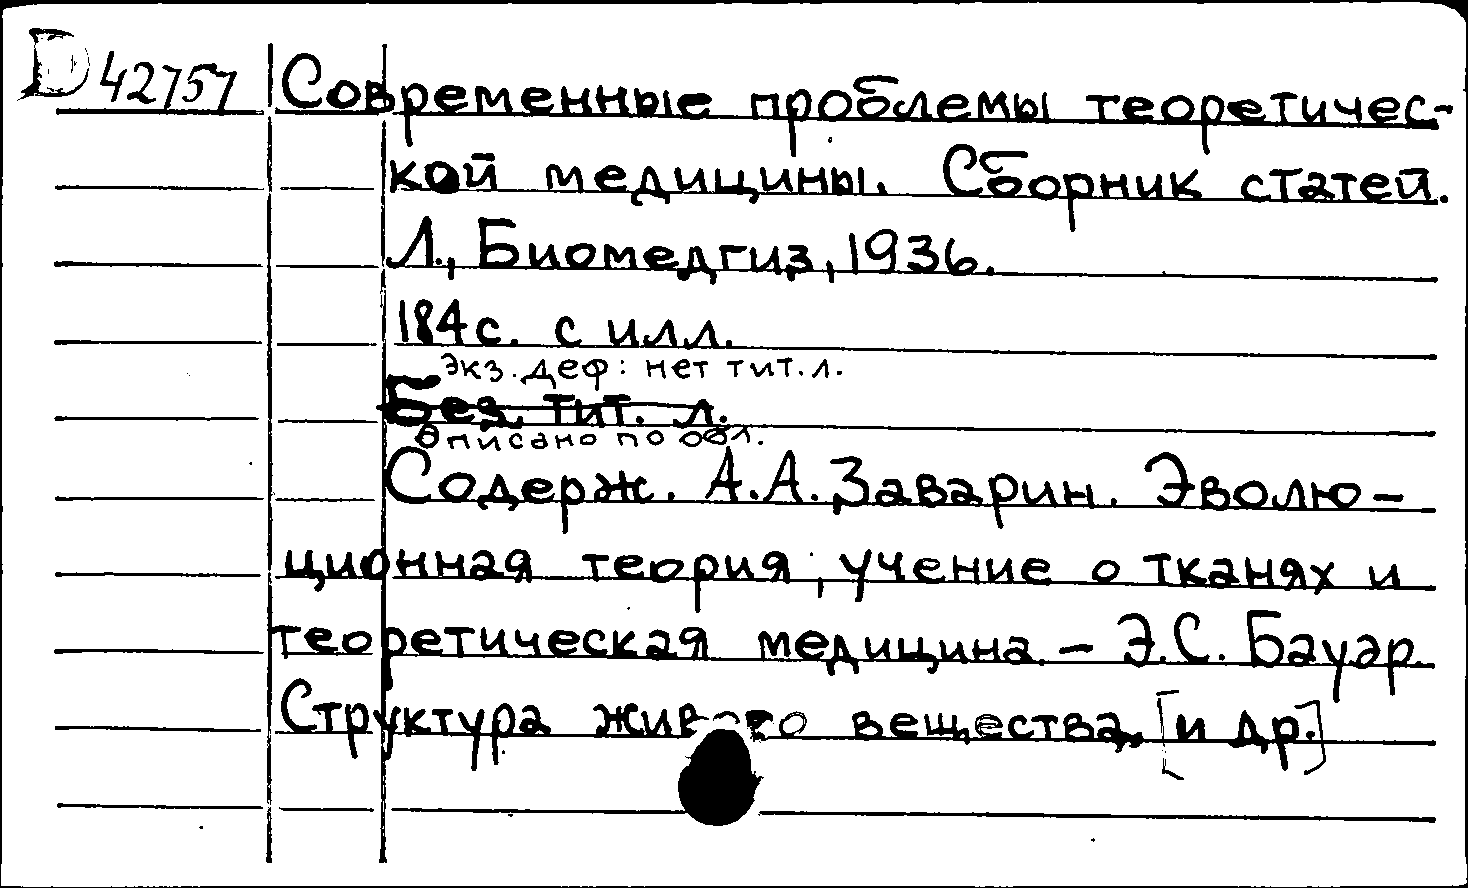 D 42757 Современные проблемы теоретичес-
кой медицины. Сборник статей.
Л., Биомедгиз, 1936.
184 с. с илл.
Экз. деф: нет тит. л.
Без тит. л.
Описано по обл.
Содерж. А.А. Заварин. Эволю-
ционная теория, учение о тканях и
теоретическая медицина. – Э.С. Бауэр.
Структура живого вещества, [и др.]